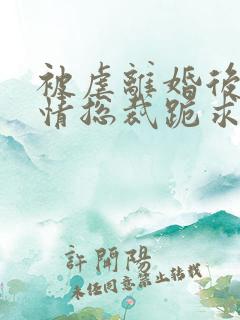 被虐離婚後
情总裁跪求
許開陽
未经同意禁止转载